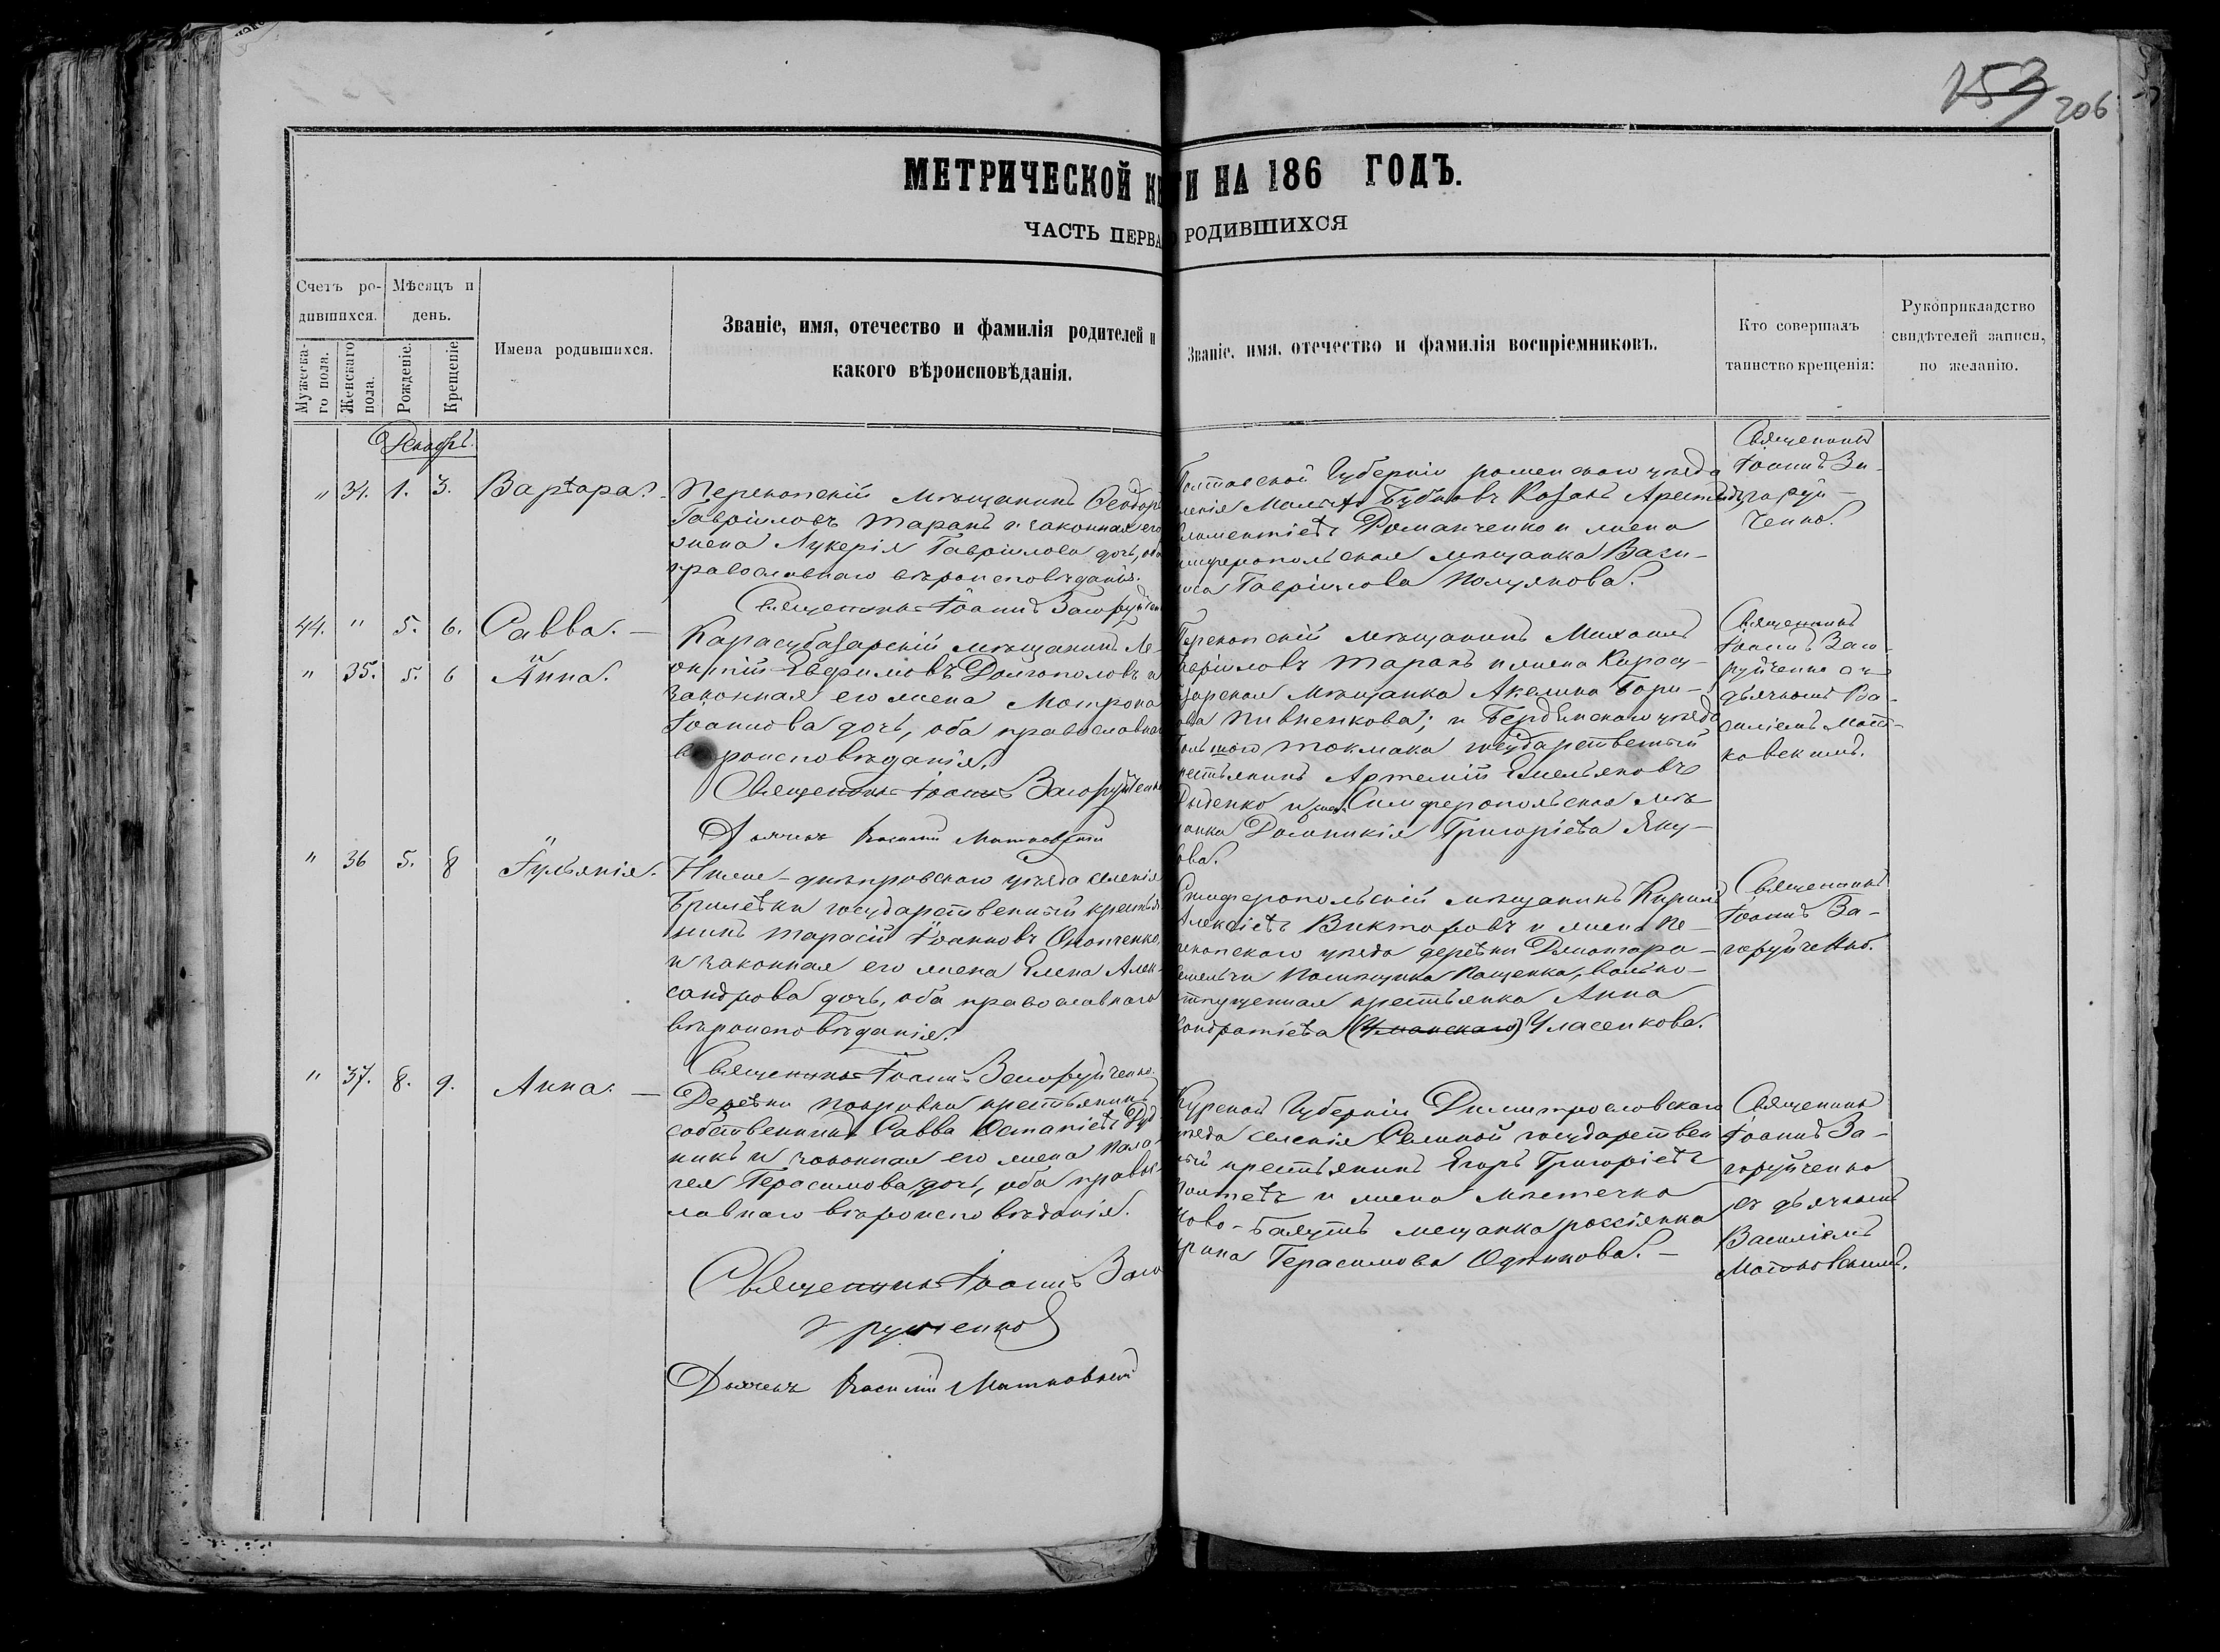 153 206
МЕТРИЧЕСКОЙ КН ГИ НА 186 ГОДЪ.
ЧАСТЬ ПЕРВА О РОДИВШИХСЯ
Счетъ ро-
дившихся.
Мужеска-
го пола.
Женскаго
пола.
Мѣсяцъ и
день.
Рожденіе.
Крещеніе
Имена родившихся.
Званіе, имя, отечество и фамилія родителей и
какого вѣроисповѣданія.
Званіе, имя, отечество и фамилія воспріемниковъ.
Кто совершалъ
таинство крещенія:
Рукоприкладство
свидѣтелей записи,
по желанію.
Декабрь.
" 34. 1. 3. Варвара.
Перекопскій мѣщанинъ Ѳеодоръ
Гавріиловъ Таранъ и законная его
жена Лукерія Гавріилова дочь, оба
православнаго вѣроисповѣданія.
Священникъ Іоаннъ Загоруйченко
Полтавской Губерніи роменскаго уѣзда
Романченко и жена
мѣщанка Васи-
Гавріилова
Священникъ
Іоаннъ За-
горуй-
ченко.
44. " 5. 6. Савва. —
" 35. 5. 6 Анна.
Карасубазарскій мѣщанинъ Ле-
онтій Евфиміовъ Долгополовъ и
законная его жена Мотрона
Іоаннова дочь, оба православнаго
вѣроисповѣданія.
Священникъ Іоаннъ Загоруйченко
Дьячокъ Василій Матковскій
Перекопскій мѣщанинъ Михаилъ
Гавріиловъ Таранъ и жена Карасу-
базарская мѣщанка Акелина Бори-
ова Пивненкова; и Бердянскаго уѣзда
Большого Токмака государственный
крестьянинъ Артемій Емельяновъ
Дыденко и жена Симферопольская мѣ-
щанка Домникія Григоріева Яку-
ова.
Священникъ
Іоаннъ Заго-
руйченко съ
дьячкомъ Ва-
силіемъ Мат-
ковскимъ.
" 36 5. 8 Іуліянія.
Ниже-днѣпровскаго уѣзда селенія
Брилевки государственный крестья-
нинъ Тарасій Іоанновъ Онопченко,
и законная его жена Елена Алек-
сандрова дочь, оба православнаго
вѣроисповѣданія.
Священникъ Іоаннъ Загоруйченко.
Симферопольскій мѣщанинъ Кирилъ
Алексіевъ Викторовъ и жена Пе-
рекопскаго уѣзда деревни
помѣщика Пащенка, вольно-
отпущенная крестьянка Анна
Кондратіева Уласенкова.
Священникъ
Іоаннъ За-
горуйченко.
" 37. 8. 9. Анна. —
Деревни Покровки крестьянинъ
собственникъ Савва Остапіевъ Дуд
никъ и законная его жена Пела-
гея Герасимова дочь, оба правос-
лавнаго вѣроисповѣданія.
Священникъ Іоаннъ Заго
руйченко
Дьячокъ Василій Матковскій
Курской Губерніи Димитрословскаго
уѣзда селенія Селиной государствен
ный крестьянинъ Егоръ Григоріевъ
и жена мѣстечка
Ново- мещанка россіянка
Ирина Герасимова Одинкова. —
Священникъ
Іоаннъ За-
горуйченко
съ дьячкомъ
Василіемъ
Матковскимъ.